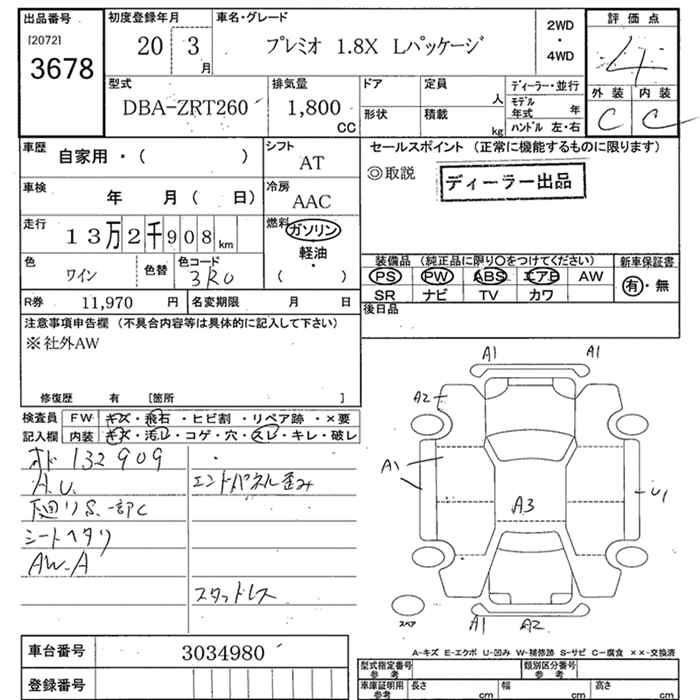 出品番号
[2072]
3678
初度登録年月
20 3
月
車名・グレード
プレミオ 1.8X Lパッケージ
2WD
・
4WD
評価点
4
外装 内装
C C
型式
DBA-ZRT260
排気量
1,800
CC
ドア
形状
定員
人
積載
kg
ディーラー・並行
モデル
年式 年
ハンドル 左・右
車歴
自家用・( )
シフト
AT
車検
年 月( 日)
冷房
AAC
走行
13万2千908km
燃料
ガソリン
軽油
・
( )
色
ワイン
色替
色コード
3R0
R券 11,970 円
名変期限 月 日
セールスポイント (正常に機能するものに限ります)
◎取説
ディーラー出品
装備品 (純正品に限り〇をつけてください)
PS PW ABS エアB AW
SR ナビ TV カワ
新車保証書
有・無
後日品
注意事項申告欄 (不具合内容等は具体的に記入して下さい)
※社外AW
修復歴 有 [箇所 ]
検査員 FW キズ・飛石・ヒビ割・リペア跡・×要
記入欄 内装 キズ・汚レ・コゲ・穴・スレ・キレ・破レ
オド132909
A.U.
下廻りS.一部C
シートヘタリ
AW-A
エンドパネル歪み
スタッドレス
A1 A1
A2
A1
A3
U1
A1 A2
スペア
A-キズ E-エクボ U-凹み W-補修跡 S-サビ C-腐食 ××-交換済
車台番号 3034980
登録番号
型式指定番号
参考
類別区分番号
参考
車庫証明用
参考
長さ cm
幅 cm
高さ cm